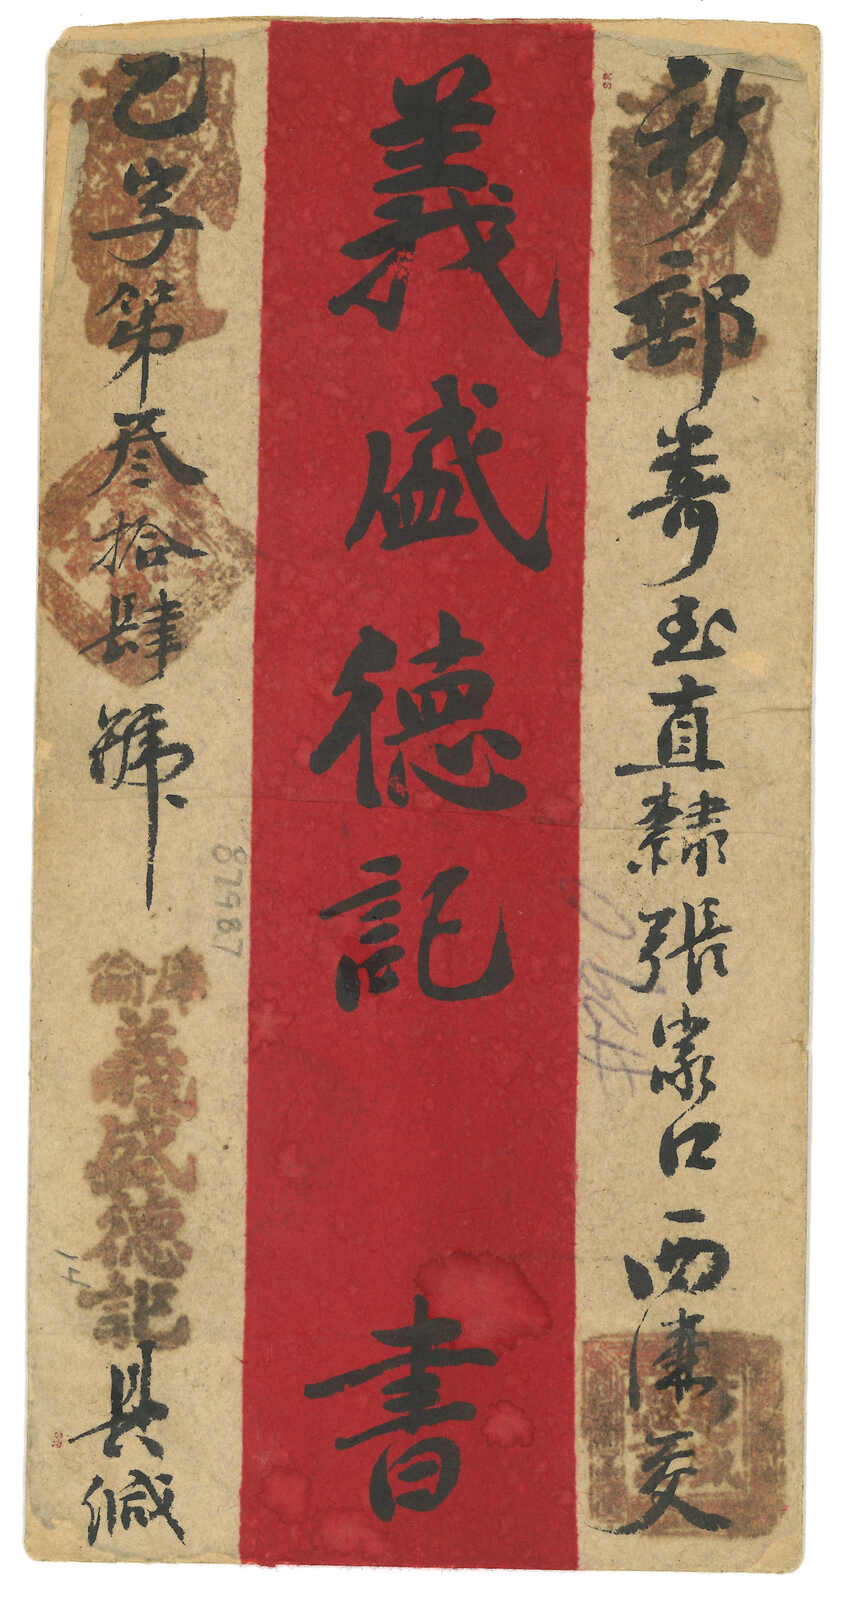 新郵寄至直隸張家口西溝交
義盛德記 書
乙字第叁拾肆號
庫倫
義盛德記
具緘
87987
14